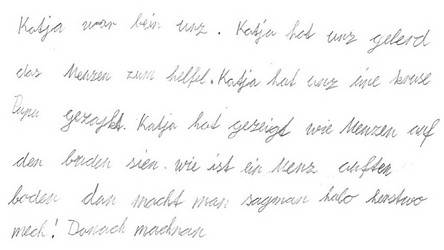 Katja war bein unz. Katja hat unz gelerd
das Menzen zum helfel. Katja hat unz ine kruse
Pupu gezajkt. Katja hat gezeigt wie Menzen auf
den boden sien. wie ist ein Menz auften
boden dan macht man sagman halo herstwo
mech! Danach machnan